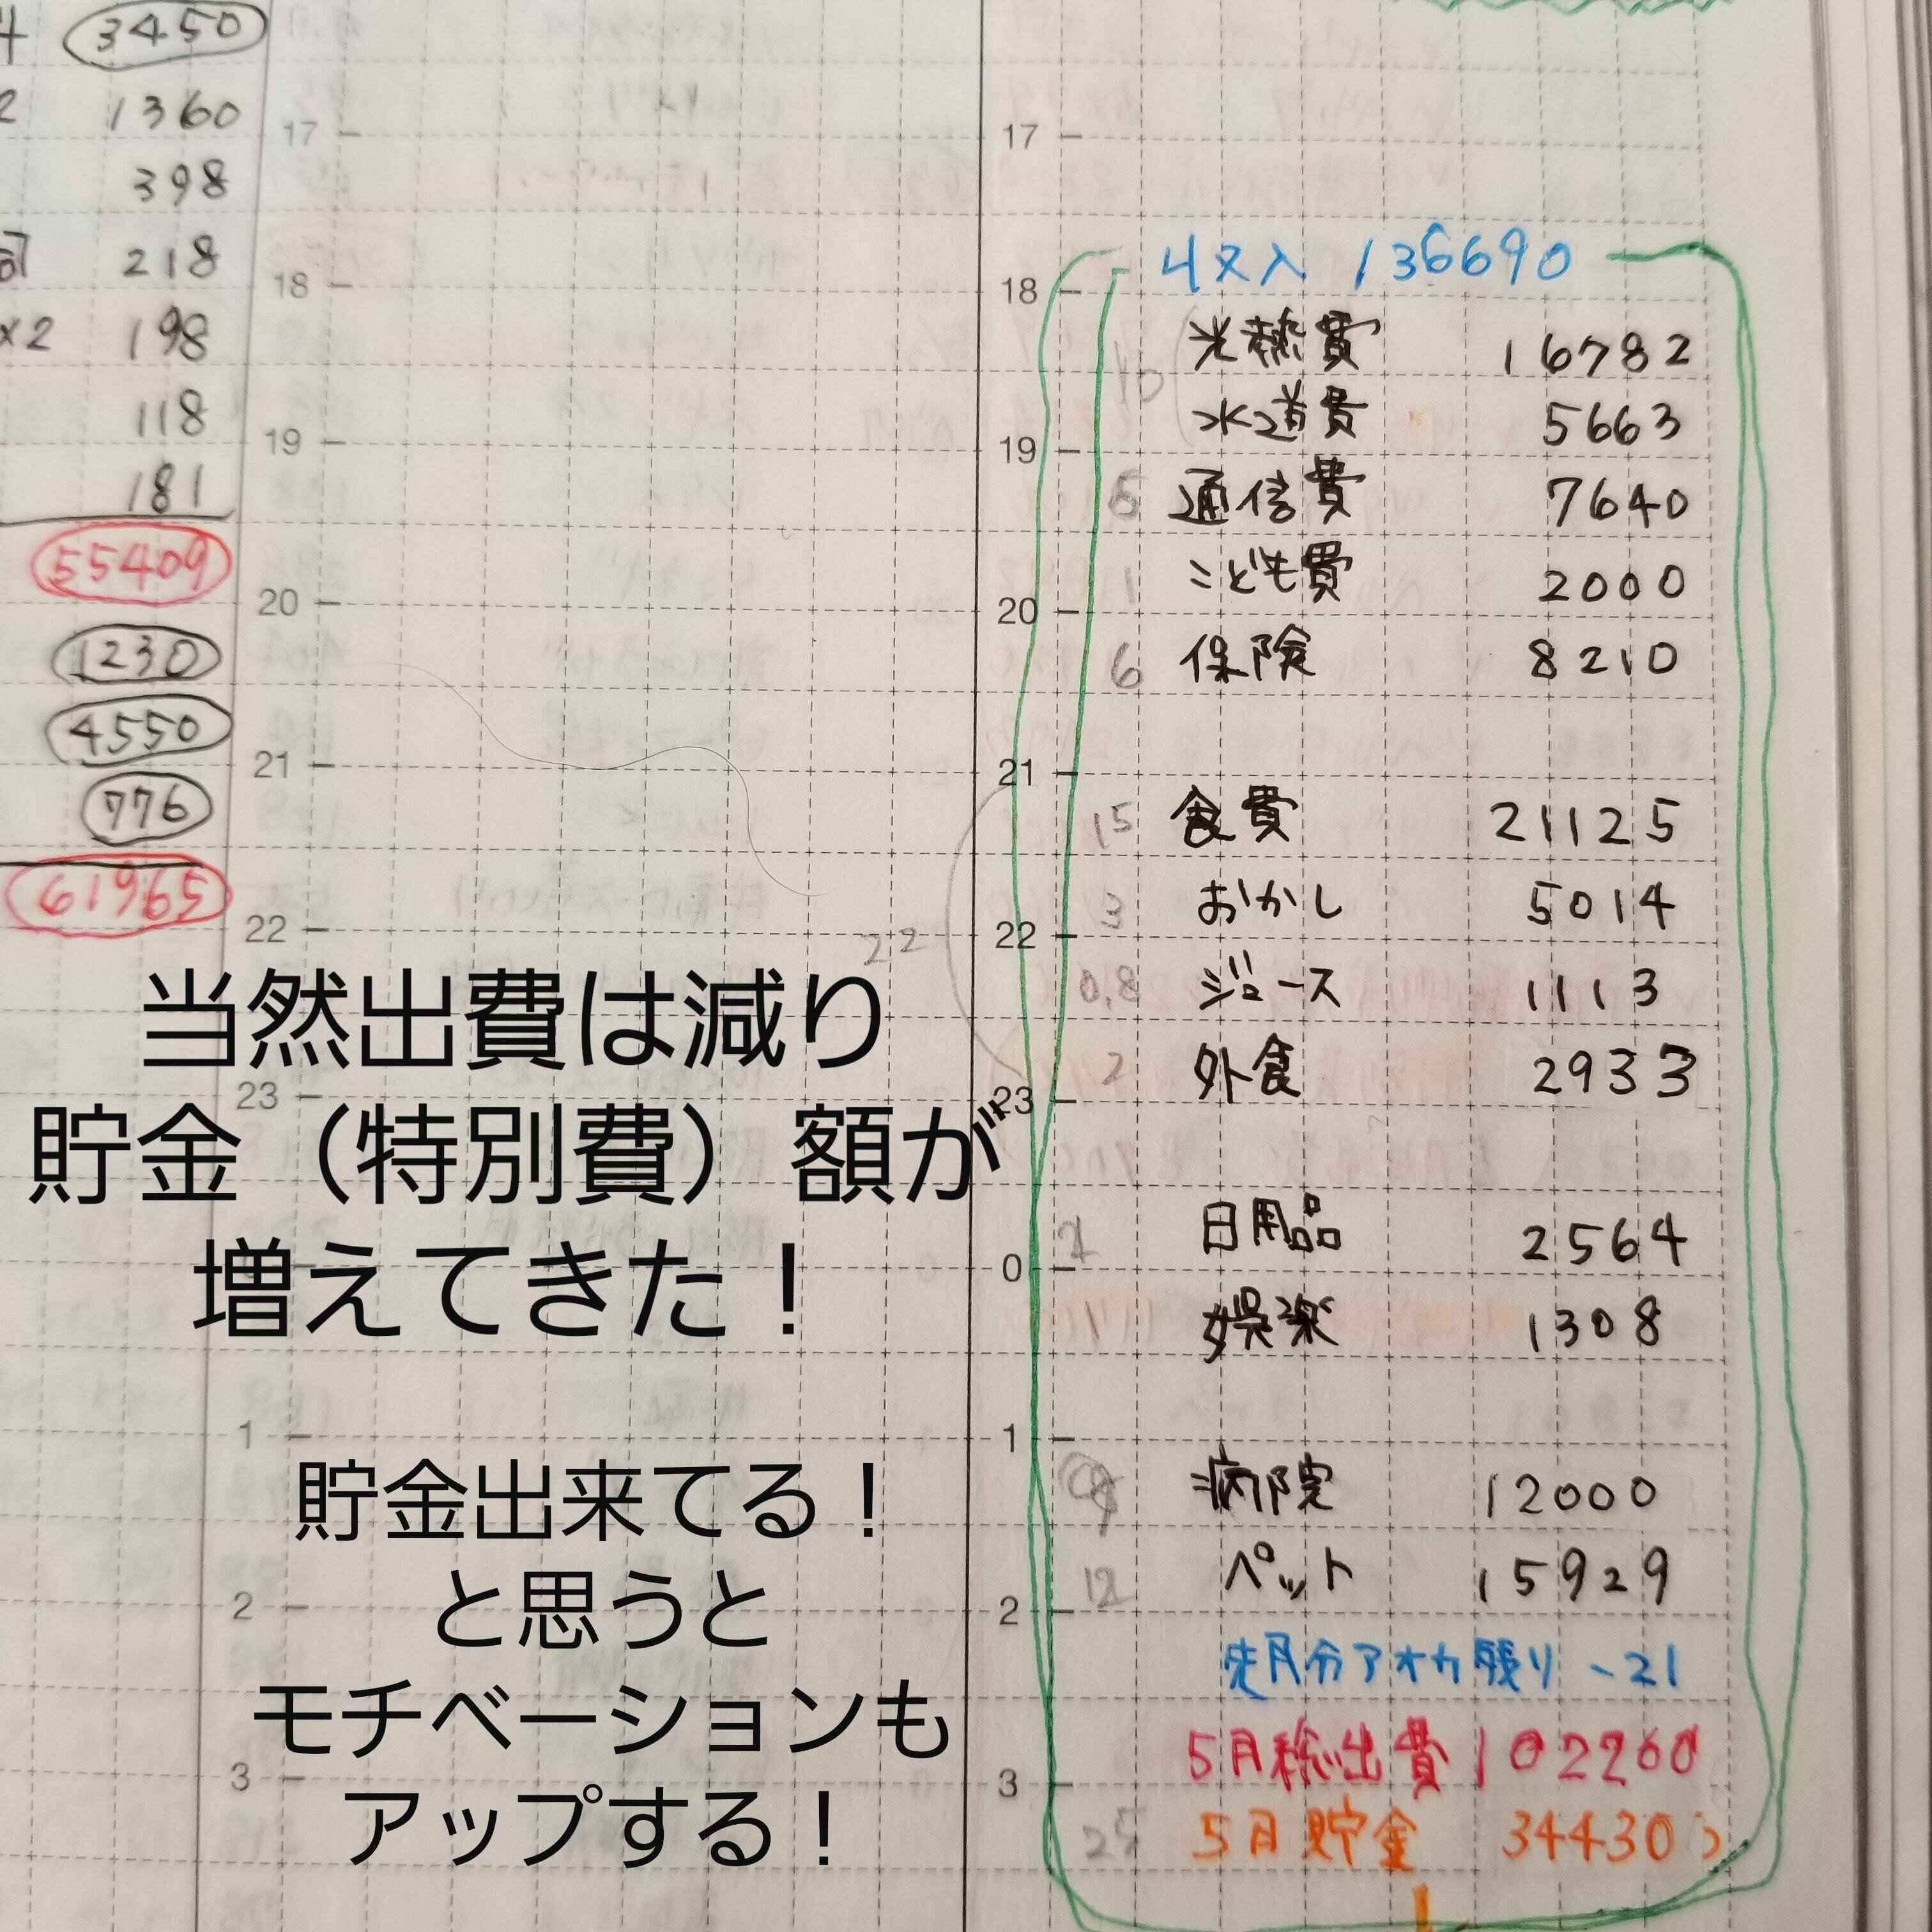 3450
1360
398
218
×2 198
118
181
55409
1230
4550
776
61965
17
18
19
20
21
22
23
1
2
3
22
当然出費は減り
貯金（特別費）額が
増えてきた！
貯金出来てる！
と思うと
モチベーションも
アップする！
17
18
19
20
21
22
23
0
1
2
3
収入 136690
10 光熱費 16782
水道費 5663
5 通信費 7640
1 こども費 2000
6 保険 8210
15 食費 21125
3 おかし 5014
0,8 ジュース 1113
2 外食 2933
日用品 2564
1 娯楽 1308
病院 12000
12 ペット 15929
先月分アオカ残り -21
5月総出費 102260
5月貯金 34430